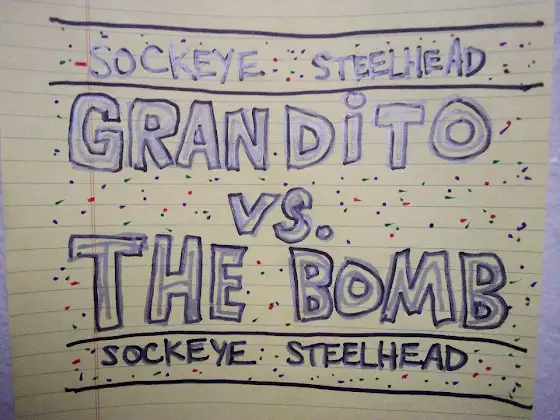 SOCKEYE STEELHEAD
GRANDiTO
vs.
THE BOMB
SOCKEYE STEELHEAD